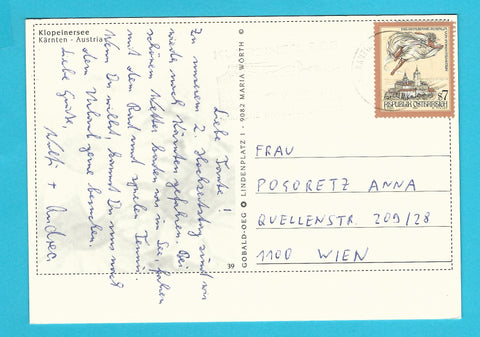 Klopeinersee
Kärnten - Austria
Liebe Tante!
Zu unserem 2. Hochzeitstag sind wir
wieder nach Kärnten gefahren. Bei
schönem Wetter baden wir im See, fahren
mit dem Rad und spielen Tennis.
Wenn Du willst, kannst Du uns nach
dem Urlaub gerne besuchen.
Liebe Grüße,
Andrea
39
GOBALD-OEG LINDENPLATZ 1 - 9082 MARIA WÖRTH ©
S7
REPUBLIK ÖSTERREICH
FRAU
POGORETZ ANNA
QUELLENSTR. 209/28
1100 WIEN